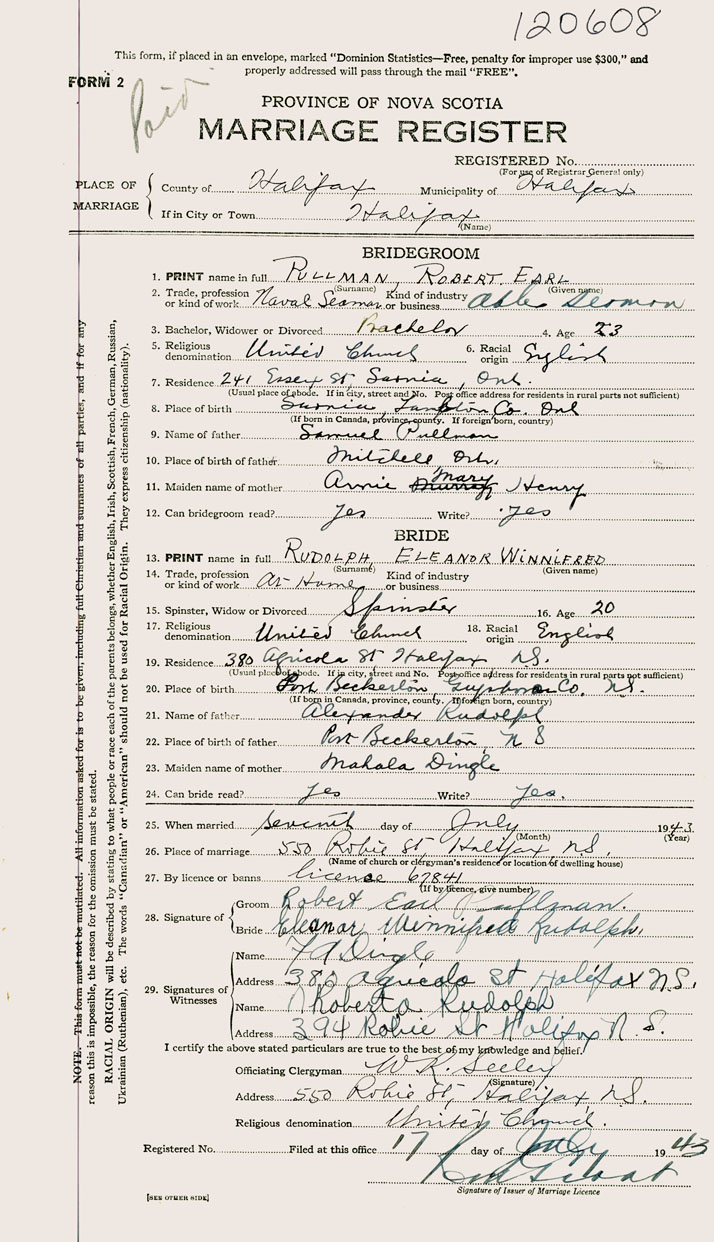 120608
This form, if placed in an envelope, marked "Dominion Statistics—Free, penalty for improper use $300," and
properly addressed will pass through the mail "FREE".
FORM 2
Paid
PROVINCE OF NOVA SCOTIA
MARRIAGE REGISTER
REGISTERED No.
(For use of Registrar General only)
PLACE OF MARRIAGE
County of Halifax Municipality of Halifax
If in City or Town Halifax
(Name)
BRIDEGROOM
1. PRINT name in full PULLMAN, ROBERT EARL
(Surname) (Given name)
2. Trade, profession or kind of work Naval Seaman Kind of industry or business Able Seaman
3. Bachelor, Widower or Divorced Bachelor 4. Age 23
5. Religious denomination United Church 6. Racial origin English
7. Residence 241 Essex St, Sarnia, Ont.
(Usual place of abode. If in city, street and No. Post office address for residents in rural parts not sufficient)
8. Place of birth Sarnia, Lambton Co. Ont
(If born in Canada, province, county. If foreign born, country)
9. Name of father Samuel Pullman
10. Place of birth of father Mitchell Ont.
11. Maiden name of mother Annie Mary Henry
12. Can bridegroom read? yes Write? yes
BRIDE
13. PRINT name in full RUDOLPH, ELEANOR WINNIFRED
(Surname) (Given name)
14. Trade, profession or kind of work At Home Kind of industry or business
15. Spinster, Widow or Divorced Spinster 16. Age 20
17. Religious denomination United Church 18. Racial origin English
19. Residence 380 Agricola St Halifax NS.
(Usual place of abode. If in city, street and No. Post office address for residents in rural parts not sufficient)
20. Place of birth Port Beckerton, Guysboro Co. N.S.
(If born in Canada, province, county. If foreign born, country)
21. Name of father Alexander Rudolph
22. Place of birth of father Port Beckerton, N S
23. Maiden name of mother Mahala Dingle
24. Can bride read? yes Write? yes.
25. When married seventh day of July 1943
(Month) (Year)
26. Place of marriage 550 Robie St, Halifax, N.S.
(Name of church or clergyman's residence or location of dwelling house)
27. By licence or banns license 67841
(If by licence, give number)
28. Signature of
Groom Robert Earl Pullman.
Bride Eleanor Winnifred Rudolph.
29. Signatures of Witnesses
Name F A Dingle
Address 380 Agricola St Halifax N.S.
Name Roberta Rudolph
Address 394 Robie St Halifax N.S.
I certify the above stated particulars are true to the best of my knowledge and belief.
Officiating Clergyman W. R. Seeley
(Signature)
Address 550 Robie St, Halifax NS.
Religious denomination United Church.
Registered No. Filed at this office 17 day of July 1943
Signature of Issuer of Marriage Licence
[SEE OTHER SIDE]
NOTE. This form must not be mutilated. All information asked for is to be given, including full Christian and surnames of all parties, and if for any
reason this is impossible, the reason for the omission must be stated.
RACIAL ORIGIN will be described by stating to what people or race each of the parents belongs, whether English, Irish, Scottish, French, German, Russian,
Ukrainian (Ruthenian), etc. The words "Canadian" or "American" should not be used for Racial Origin. They express citizenship (nationality).